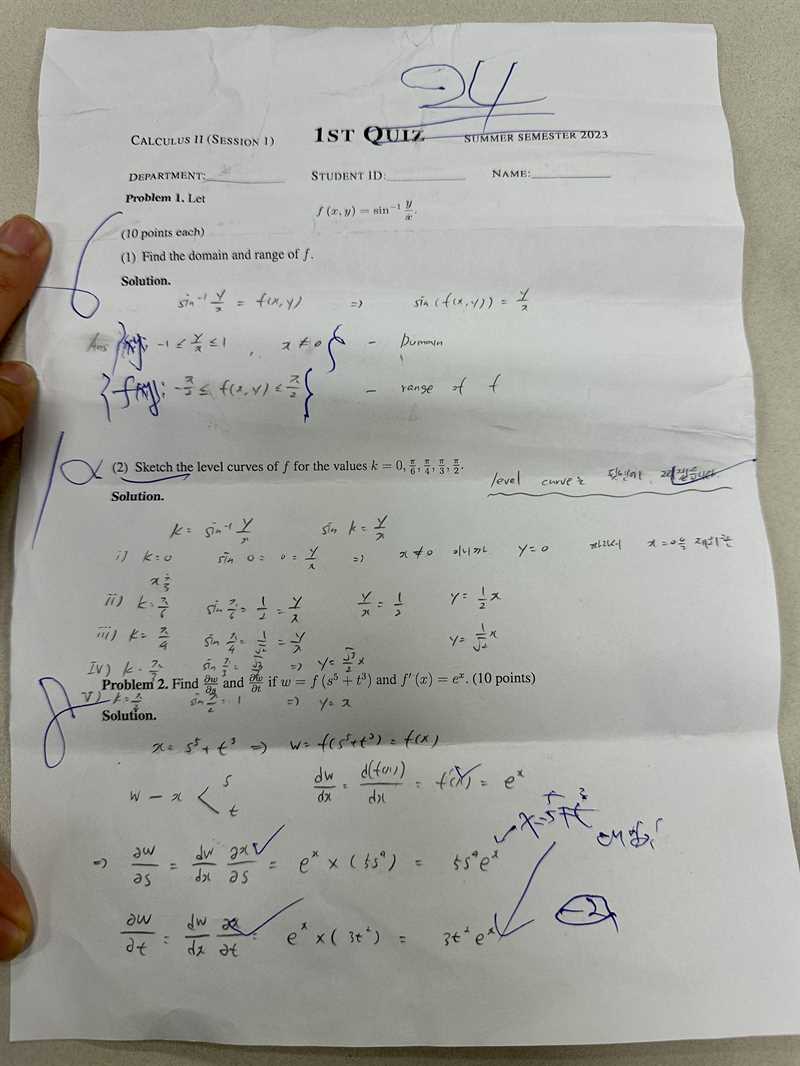 94
CALCULUS II (SESSION 1) 1ST QUIZ SUMMER SEMESTER 2023
DEPARTMENT: STUDENT ID: NAME:
Problem 1. Let
f (x, y) = sin⁻¹ y/x.
(10 points each)
(1) Find the domain and range of f.
Solution.
sin⁻¹ y/x = f(x,y) => sin (f(x,y)) = y/x
Ans { : -1 ≤ y/x ≤ 1 , x ≠ 0 } - Domain
{ f(x,y): -π/2 ≤ f(x,y) ≤ π/2 } - range of f
10
(2) Sketch the level curves of f for the values k = 0, π/6, π/4, π/3, π/2.
level curve는 뒷면에
Solution.
k = sin⁻¹ y/x sin k = y/x
i) k=0 sin 0 = 0 = y/x => x ≠ 0 이니까 y=0 따라서 x=0을 제외한
ii) k=π/6 sin π/6 = 1/2 = y/x y/x = 1/2 y = 1/2 x
iii) k = π/4 sin π/4 = 1/√2 = y/x y = 1/√2 x
iv) k = π/3 sin π/3 = √3/2 => y = √3/2 x
Problem 2. Find ∂w/∂s and ∂w/∂t if w = f (s⁵ + t³) and f′ (x) = eˣ. (10 points)
v) k=π/2 sin π/2 = 1 => y = x
8
Solution.
x = s⁵ + t³ => w = f(s⁵+t³) = f(x)
w - x < s t dw/dx = d(f(x))/dx = f'(x) = eˣ
x=s⁵+t³
=> ∂w/∂s = dw/dx ∂x/∂s = eˣ × (5s⁴) = 5s⁴eˣ
-2
∂w/∂t = dw/dx ∂x/∂t = eˣ × (3t²) = 3t²eˣ